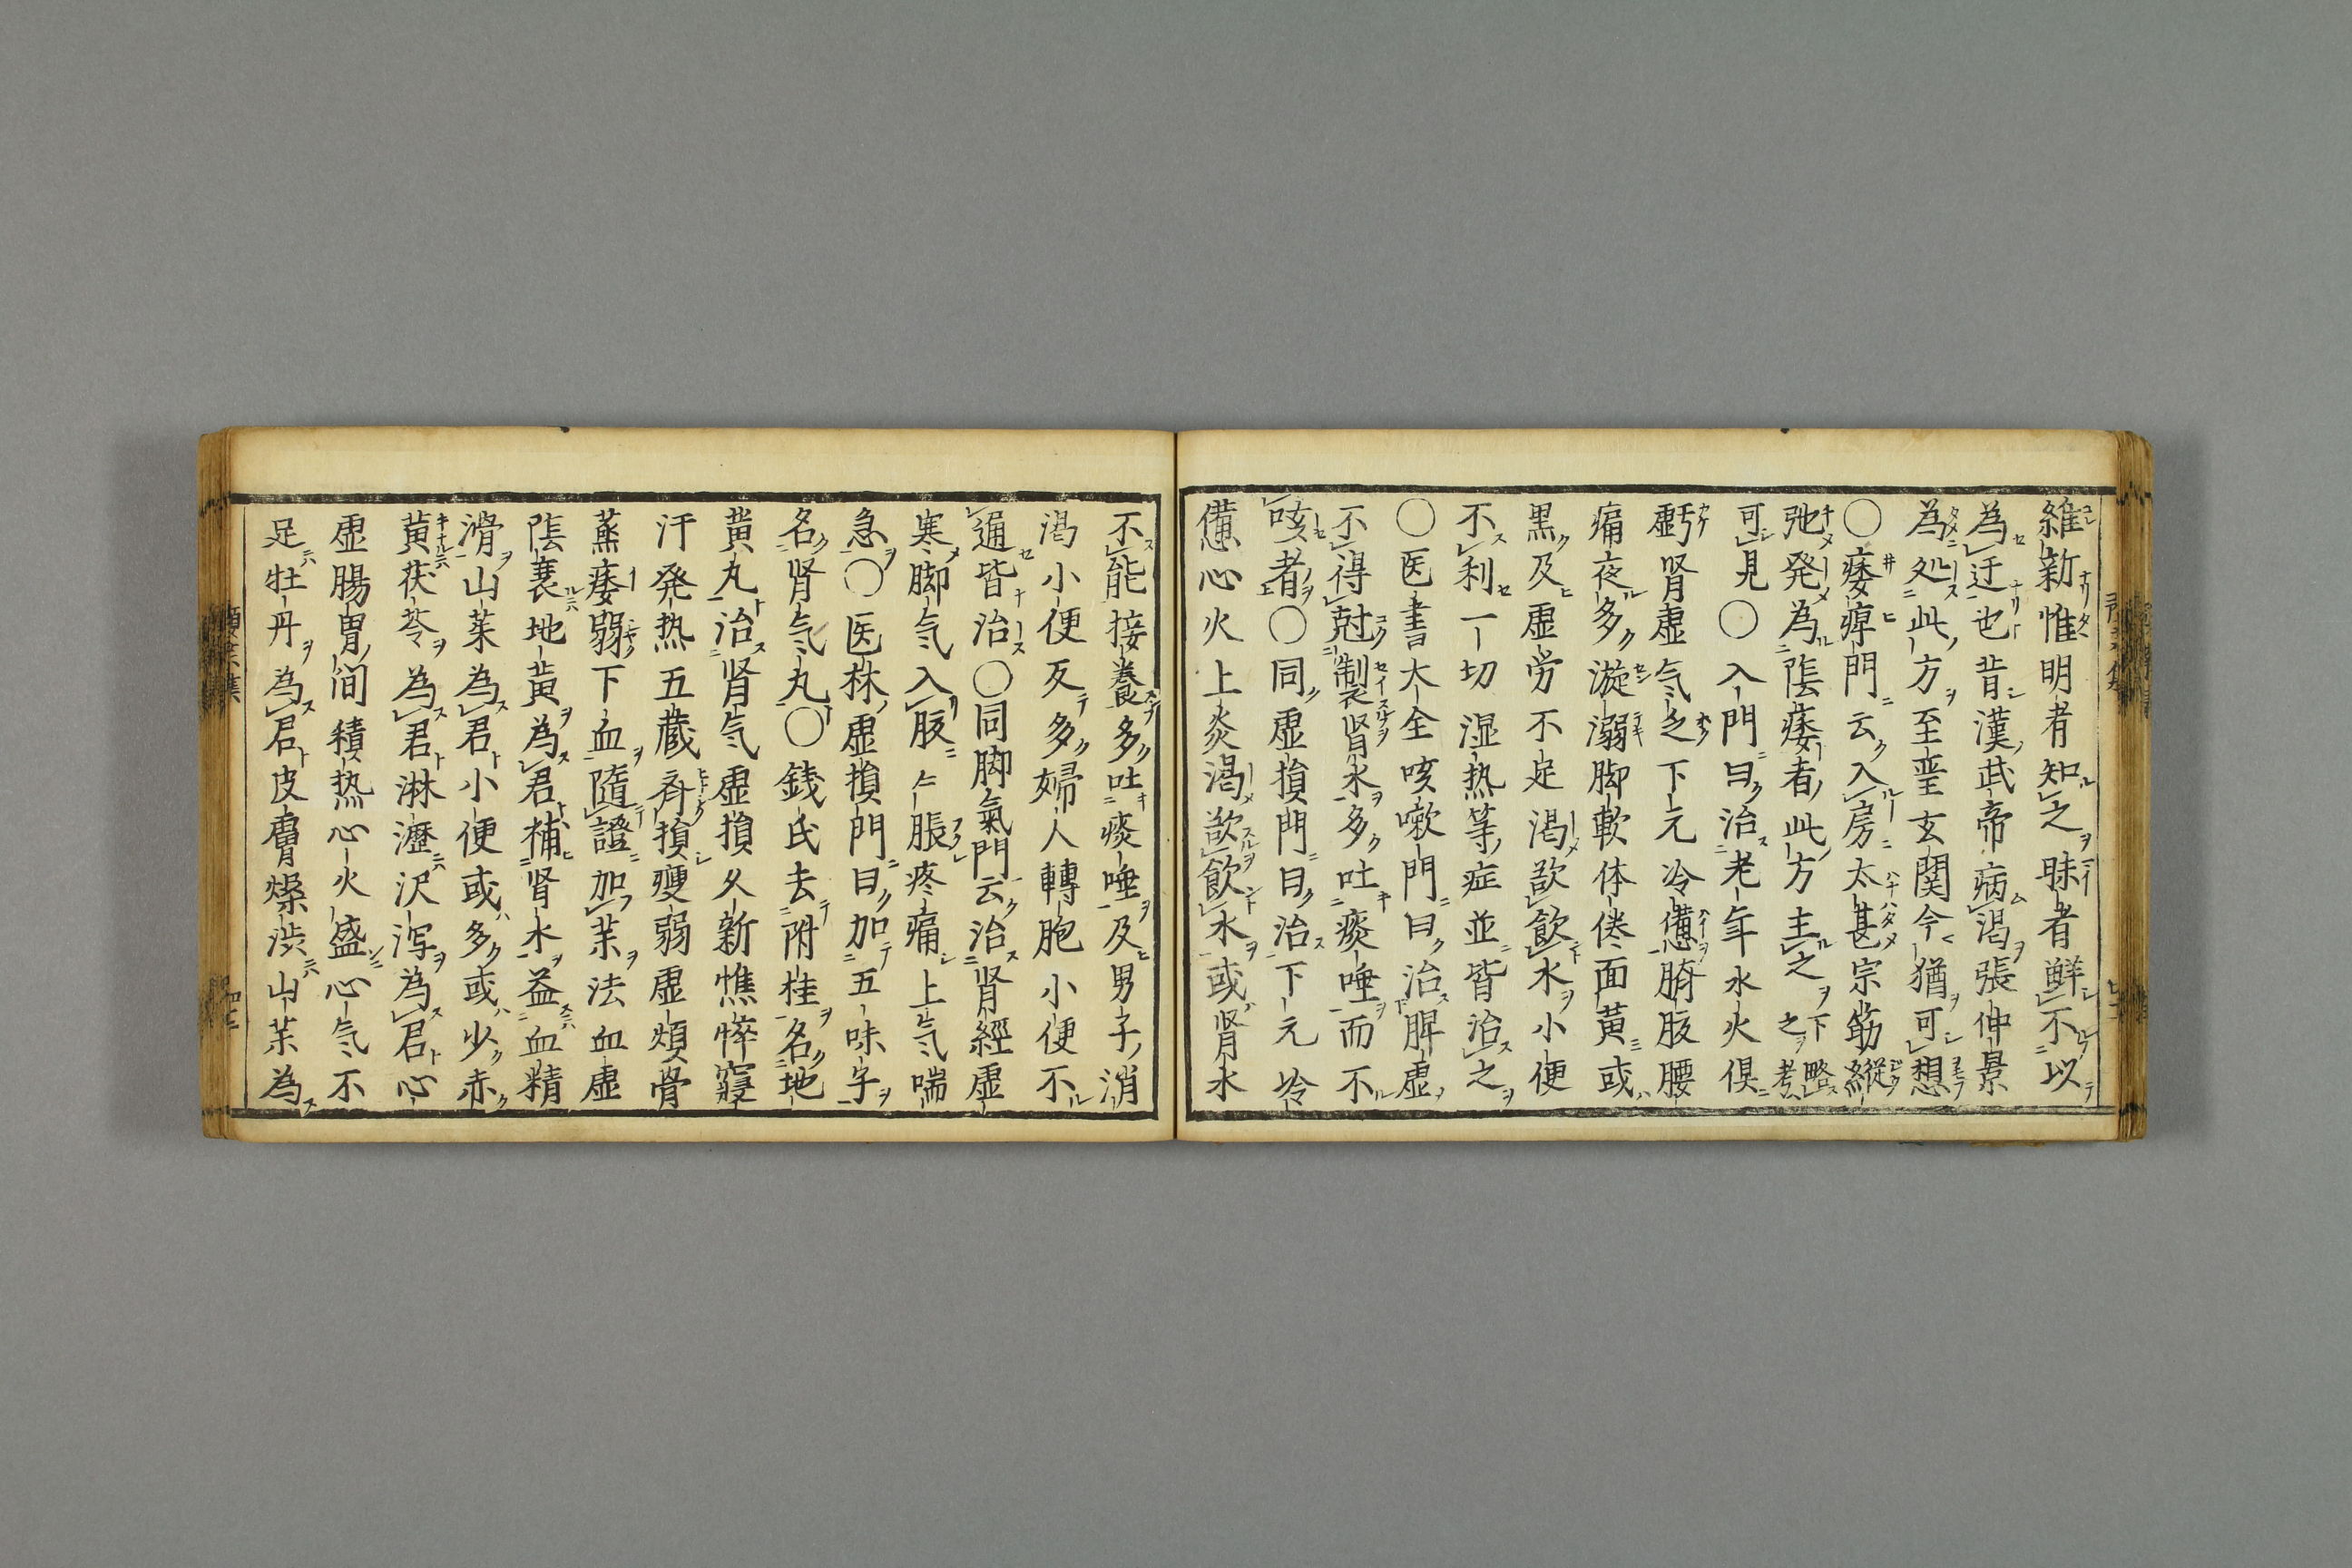 維新惟明者知之昧者鮮不以
為迂也昔漢武帝病渇張仲景
為処此方至聖玄関今猶可想
〇痿痺門云入房太甚宗筋縦
弛発為陰痿者此方主之下略之考
可見〇入門曰治老年水火倶
虧腎虚气乏下元冷憊臍腹腰
痛夜多漩溺脚軟体倦面黄或
黒及虚労不足渇欲飲水小便
不利一切湿热等症並皆治之
〇医書大全咳嗽門曰治脾虚
不得尅製腎水多吐痰唾而不
咳者〇同虚損門曰治下元冷
憊心火上炎渇欲飲水或腎水
不能接養多吐痰唾及男子消
渇小便反多婦人轉胞小便不
通皆治〇同脚氣門云治腎經虚
寒脚气入腹脹疼痛上气喘
急〇医林虚損門曰加五味子
名腎气丸〇銭氏去附桂名地
黄丸治腎气虚損久新憔悴寝
汗発热五蔵斉損痩弱虚煩骨
蒸痿弱下血隨證加减法血虚
陰衰地黄為君補腎水益血精
滑山茱為君小便或多或少赤
黄茯苓為君淋瀝沢泻為君心
虚腸胃間積热心火盛心气不
足牡丹為君皮膚燥渋山茱為